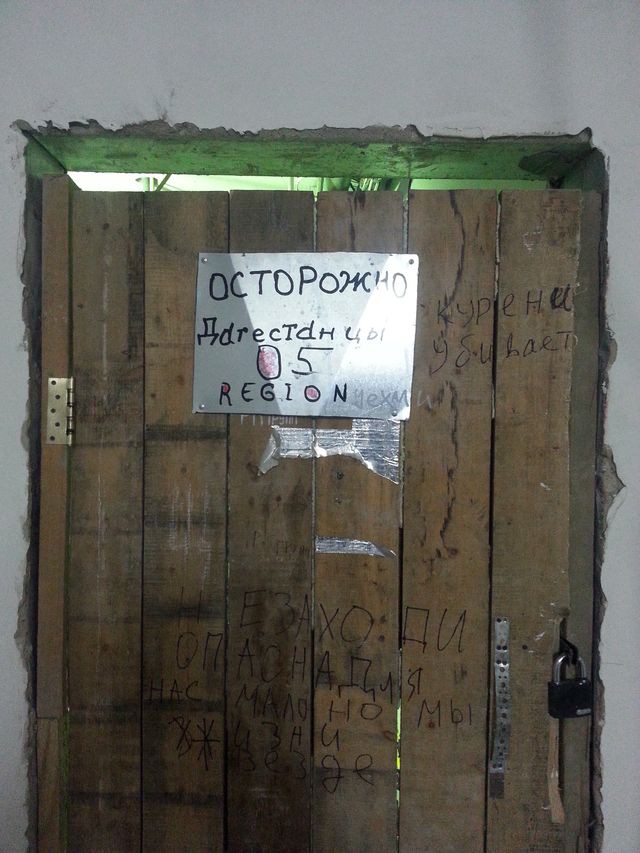 ОСТОРОЖНО
Дагестанцы
05
REGION
курени
убивает
НЕЗАХОДИ
ОПАСНА ДЛЯ
НАС МАЛО НО МЫ
ЖИЗНИ
везде